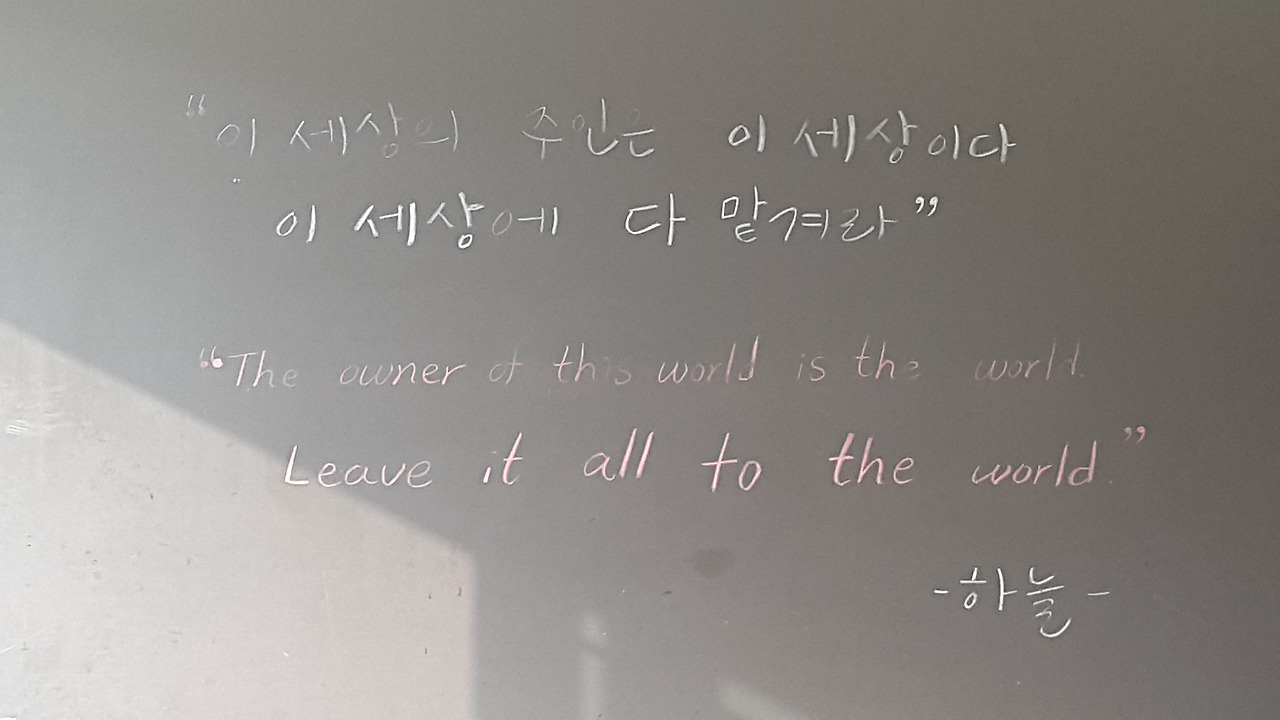 “이 세상의 주인은 이 세상이다
이 세상에 다 맡겨라”
“The owner of this world is the world.
Leave it all to the world.”
-하늘-